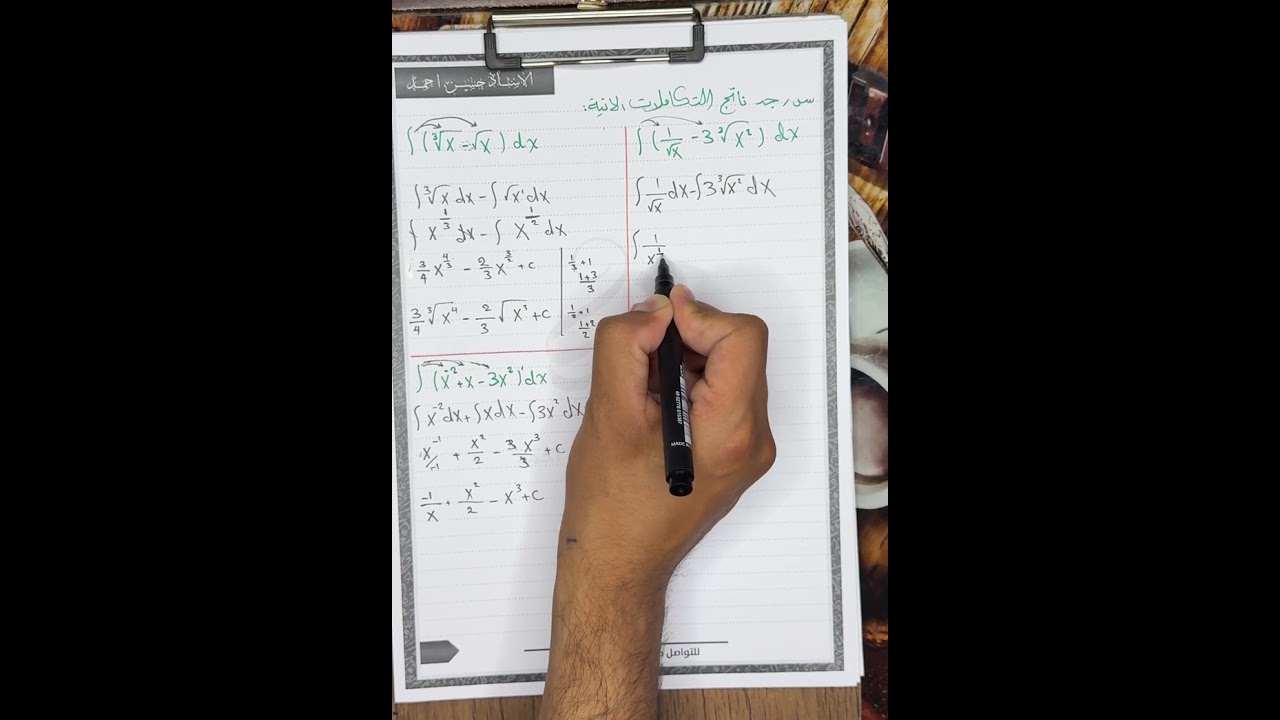 الاستاذ حسين احمد
س/ جد ناتج التكاملات الاتية:
∫(1/√x - 3∛x²) dx
∫1/√x dx - ∫3∛x² dx
∫1/x^1
∫(∛x - √x) dx
∫∛x dx - ∫√x¹ dx
∫x^(1/3) dx - ∫x^(1/2) dx
3/4 x^(4/3) - 2/3 x^(3/2) + c
3/4 ∛x⁴ - 2/3 √x³ + c
1/3 + 1
1+3/3
1/2 + 1
1+2/2
∫(x⁻² + x - 3x²)¹ dx
∫x⁻² dx + ∫x dx - ∫3x² dx
x⁻¹/-1 + x²/2 - 3x³/3 + c
-1/x + x²/2 - x³ + c
للتواصل
MADE